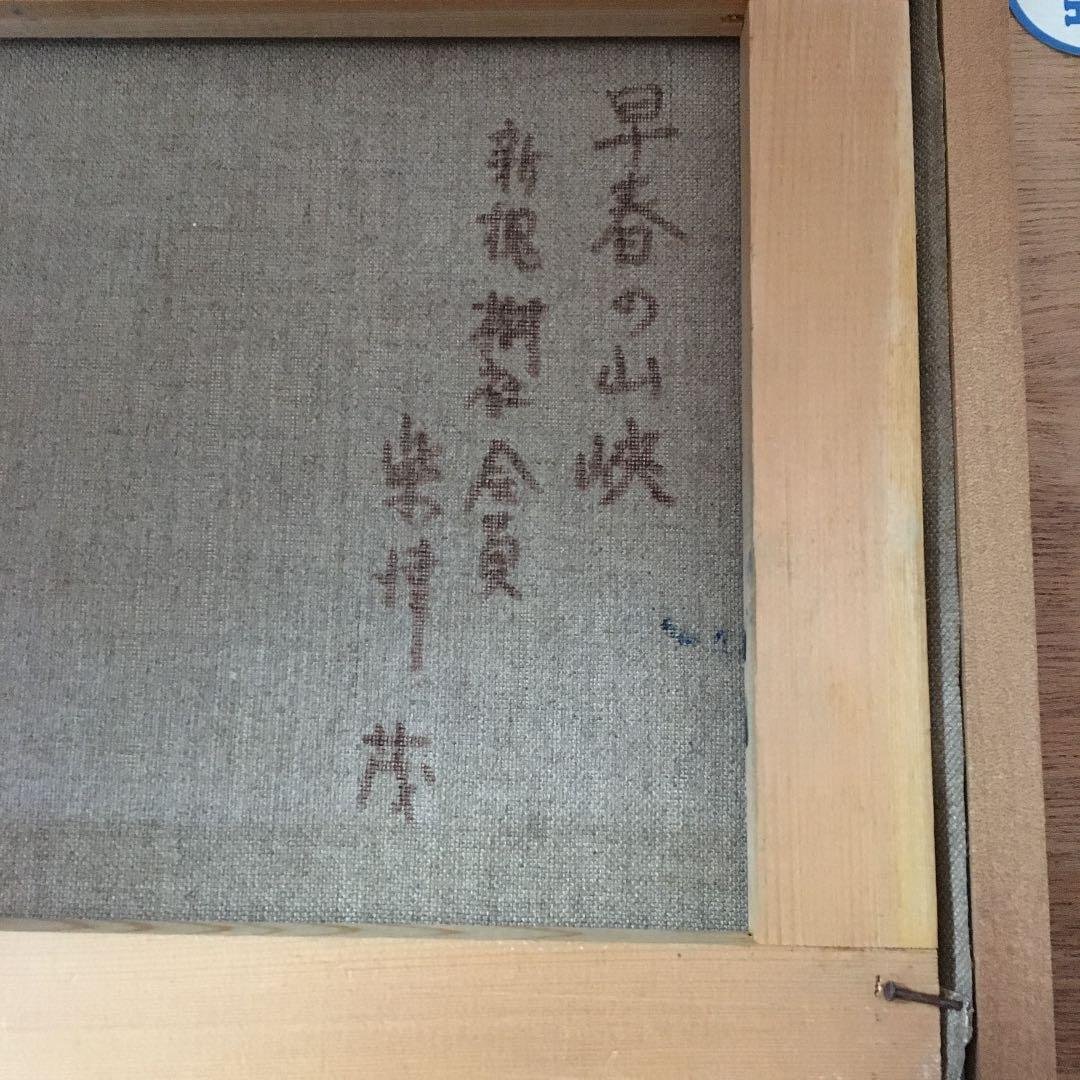 早春の山峡
新槐樹社会員
柴 茂